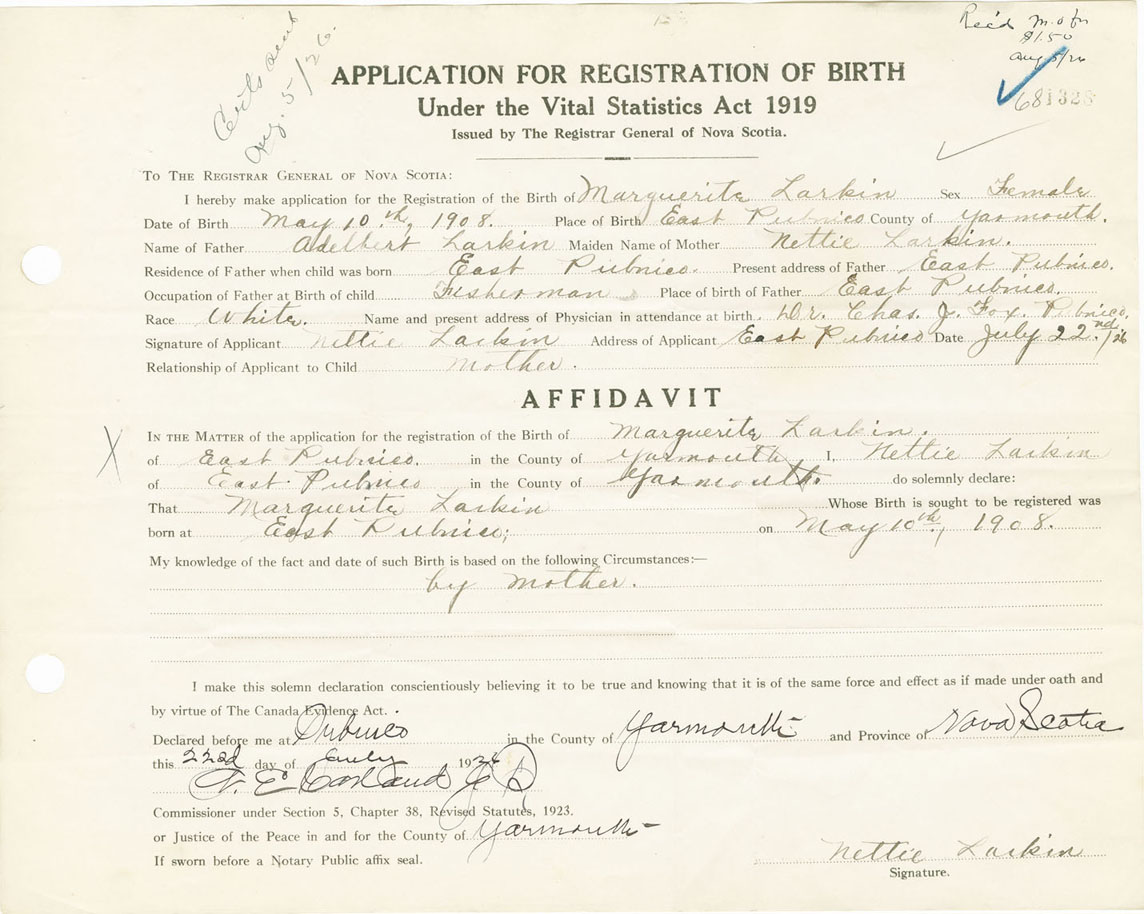 Rec'd m.o for
$1.50
Aug 5/26
Certs sent
Aug. 5/26.
681328
APPLICATION FOR REGISTRATION OF BIRTH
Under the Vital Statistics Act 1919
Issued by The Registrar General of Nova Scotia.
To The Registrar General of Nova Scotia:
I hereby make application for the Registration of the Birth of Marguerite Larkin Sex Female
Date of Birth May 10.th, 1908. Place of Birth East Pubnico. County of Yarmouth.
Name of Father Adelbert Larkin Maiden Name of Mother Nettie Larkin.
Residence of Father when child was born East Pubnico. Present address of Father East Pubnico.
Occupation of Father at Birth of child Fisherman Place of birth of Father East Pubnico.
Race White. Name and present address of Physician in attendance at birth. Dr. Chas. J. Fox. Pubnico,
Signature of Applicant Nettie Larkin Address of Applicant East Pubnico Date July 22.nd/26
Relationship of Applicant to Child Mother.
AFFIDAVIT
X In the Matter of the application for the registration of the Birth of Marguerite Larkin.
of East Pubnico. in the County of Yarmouth, I, Nettie Larkin
of East Pubnico in the County of Yarmouth. do solemnly declare:
That Marguerite Larkin Whose Birth is sought to be registered was
born at East Pubnico; on May 10th, 1908.
My knowledge of the fact and date of such Birth is based on the following Circumstances:—
by Mother.
I make this solemn declaration conscientiously believing it to be true and knowing that it is of the same force and effect as if made under oath and
by virtue of The Canada Evidence Act.
Declared before me at Pubnico in the County of Yarmouth and Province of Nova Scotia
this 22nd day of July 1926
Commissioner under Section 5, Chapter 38, Revised Statutes, 1923.
or Justice of the Peace in and for the County of Yarmouth
If sworn before a Notary Public affix seal.
Nettie Larkin
Signature.